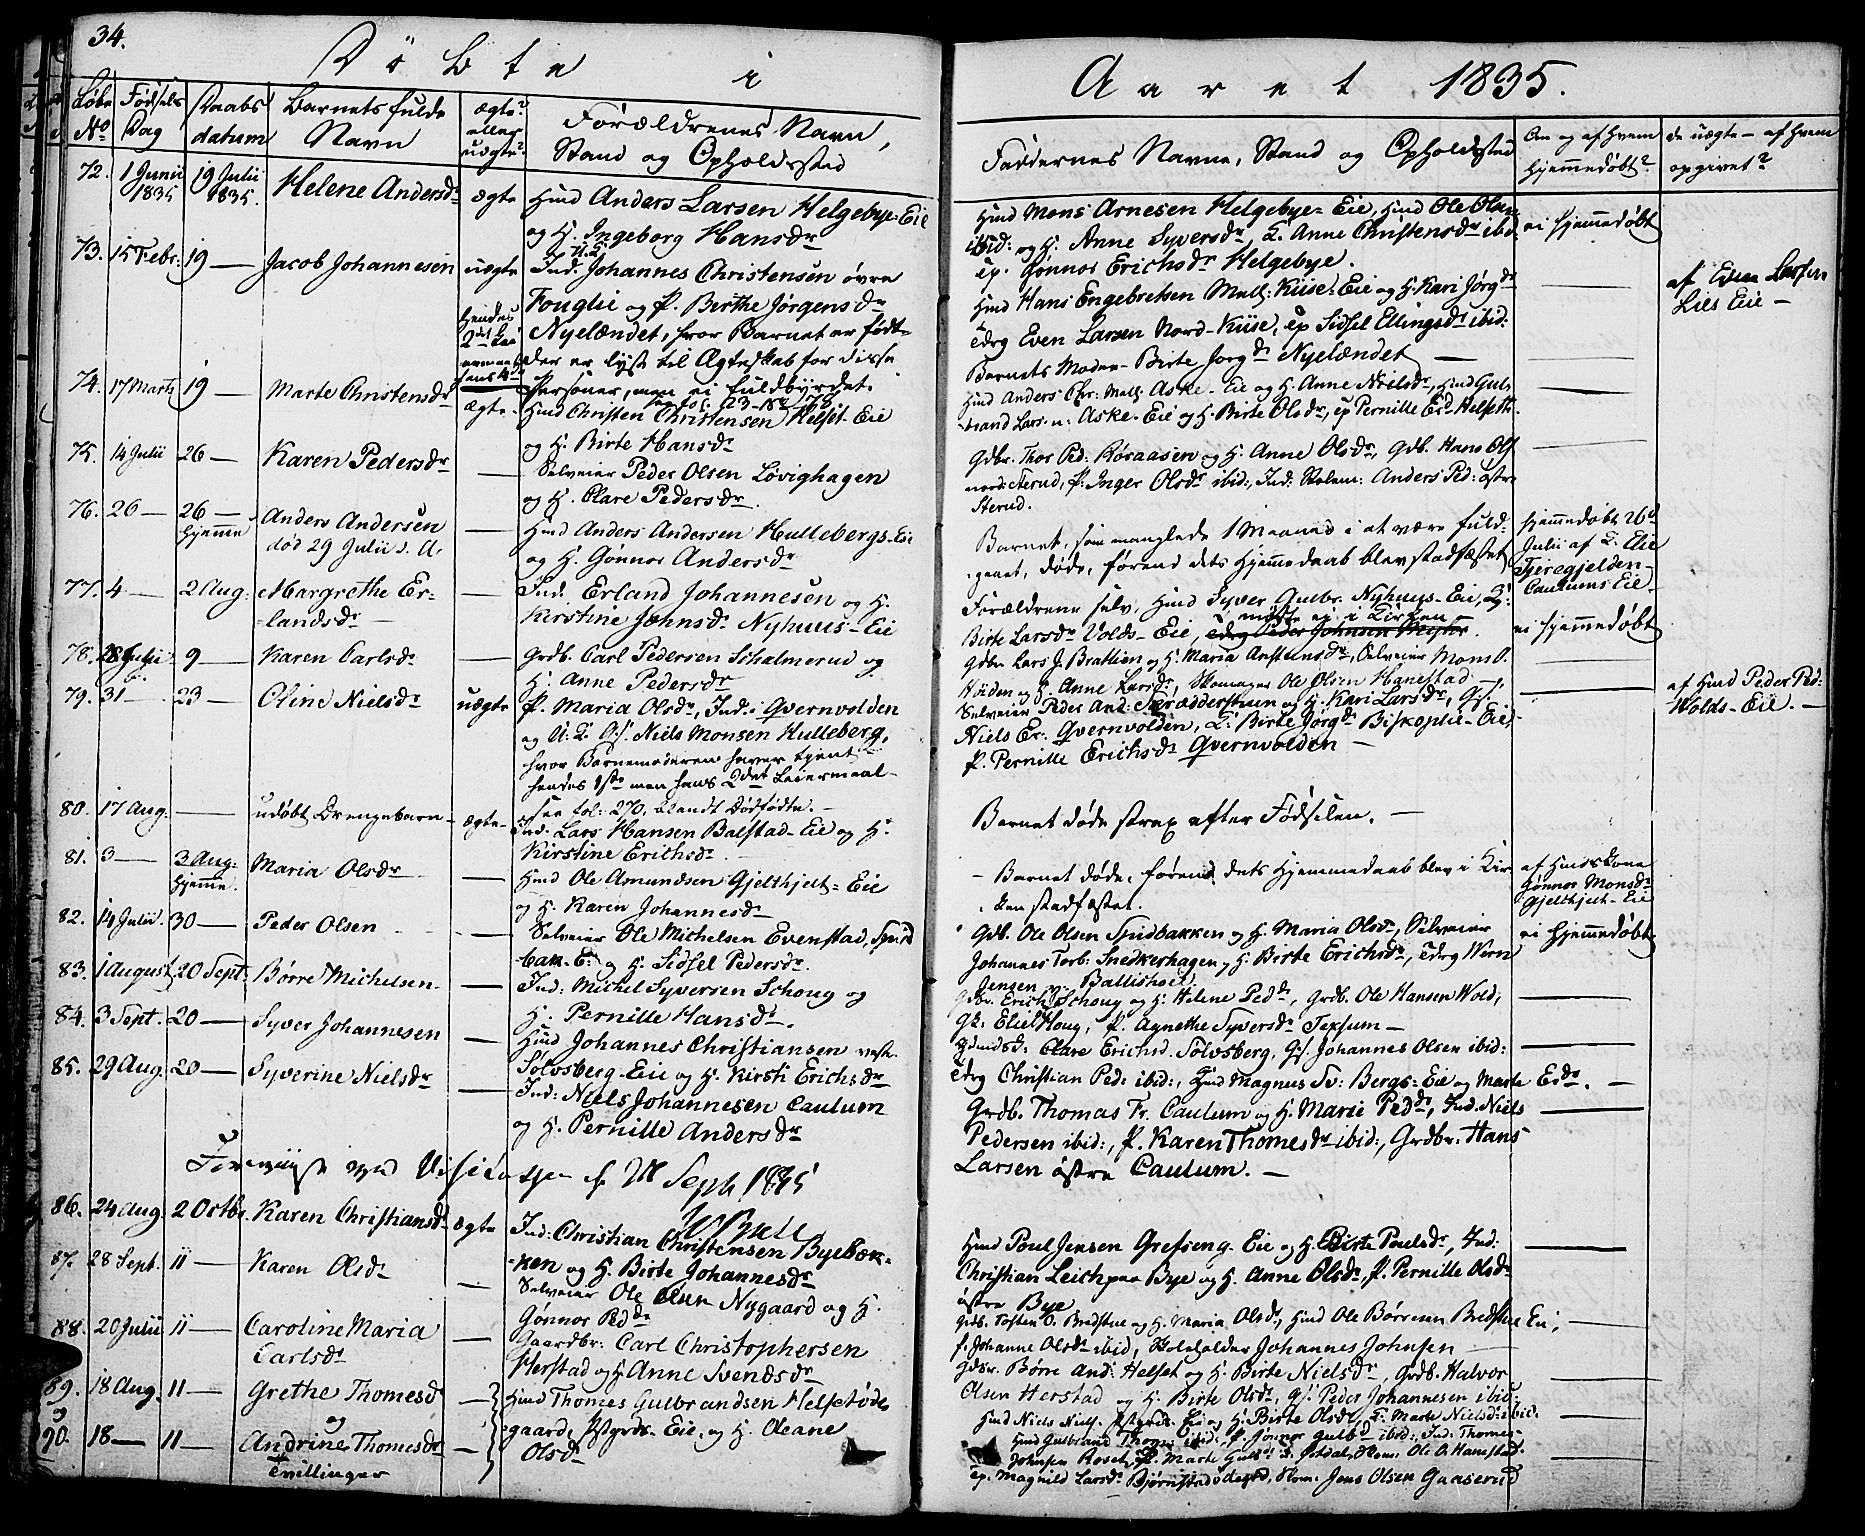 34.
Döbte i
Aaret 1835.
Löbe No
Fødsels Dag
Daabs datum
Barnets fulde Navn
ægte? eller uægte?
Forældrenes Navn, Stand og Opholdssted
Faddernes Navne, Stand og Opholdssted
Om og af hvem hjemmedøbt?
de uægte – af hvem opgivet?
72. 1 Junii 1835 19 Julii 1835. Helene Andersdr ægte Huusmd Anders Larsen Helgebye-Eie
og H. Ingeborg Hansdr
Huusmd Mons Arnesen Helgebye-Eie, Huusmd Ole Olsen
ibid: og H. Anne Syversdr, T. Anne Christensdr ibid:
ep. Gønnor Erichsdr Helgebye.
ei hjemmedøbt
73. 15 Febr: 19 — Jacob Johannesen uægte Ind. Johannes Christensen övre
Fouglie og P. Birthe Jörgensdr
Nyelændet, hvor Barnet er födt
der er lyst til Ægteskab for disse
Personer, men ei fuldbyrdet.
Huusmd Hans Engebretsen Mell: Kiise-Eie og H. Kari Jørgdr
Edrg Even Larsen Nord-Kiise, ep Sidsel Ellingsdr ibid:
Barnets Moder Birte Jørgdr Nyelændet —
af Even Larsen
Lies Eie —
74. 17 Marts 19 — Marte Christensdr ægte Huusmd Christen Christensen Helset-Eie
og H. Birte Hansdr
Huusmd Anders Chr: Mell: Aske-Eie og H. Anne Nielsdr, Huusmd Gul-
brand Lars: n: Aske-Eie og H. Birte Olsdr, ep Pernille Erdr Helseth.
75. 14 Julii 26 — Karen Pedersdr — Selveier Peder Olsen Lövighagen
og H. Clare Pedersdr.
Gdbr. Thor Ped: Röraasen og H. Anne Olsdr, Gdb. Hans Ols
nord: Sterud, P. Inger Olsdr ibid:, Ind. Skolem: Anders Ped: östre
Sterud.
76. 26 — 26 — hjemme Anders Andersen
död 29 Julii s. A. — Huusmd Anders Andersen Hullebergs-Eie
og H. Gönnor Andersdr
Barnet, som manglede 1 Maaned i at være fuld-
gaaet, döde, förend dets Hjemmedaab blev stadfæstet
hjemmedøbt 26de
Julii af T. Elie
Tjeregjelden-
Caulums Eie —
77. 4 — 2 Aug: Margrethe Er-
landsdr — Ind. Erland Johannesen og H.
Kirstine Johnsdr Nyhuus-Eie
Forældrene selv, Huusmd Syver Gulbr: Nyhuus-Eie, T:
mötte ei i Kirken
Birte Larsdr Volds-Eie, Edrg Peder Johnsen
ei hjemmedøbt
78. 28 Julii 9 — Karen Carlsdr — Grdb. Carl Pedersen Schalmerud og
H. Anne Pedersdr
Gdbr Lars J. Brattien og H. Maria Arstensdr, Selveier Mons O.
Höiden og H. Anne Larsdr, Skomager Ole Olsen Hanestad
79. 31 — 23 — Oline Nielsdr uægte P. Maria Olsdr, Ind. i Qvernvolden
og U: K: Gs. Niels Monsen Hulleberg,
hvor Barnemoderen haver tjent
hendes 1ste men hans 2det Leiermaal
Selveier Peder And: Skrædderstuen og H. Kari Larsdr, Gs.
Niels Er: Qvernvolden, T: Birte Jörgdr Biskoplie-Eie,
P. Pernille Erichsdr Qvernvolden —
af Huusmd Peder Ped:
Wolds-Eie. —
80. 17 Aug. — udöbt Drengebarn ægte see fol: 270, blandt Dödfödte. —
Ind. Lars Hansen Balstad-Eie og H.
Kirstine Erichsdr
Barnet döde strax efter Födselen. —
81. 3 — 3 Aug: hjemme. Maria Olsdr — Huusmd Ole Amundsen Gjelthjelt-Eie
og H. Karen Johannesdr
— Barnet döde, förend dets Hjemmedaab blev i Kir-
ken stadfæstet.
af Huuskone
Gønnor Monsdr
Gjelthjelt-Eie
82. 14 Julii. 30 — Peder Olsen — Selveier Ole Michelsen Evenstad, Snid
bak-E: og H. Sidsel Pedersdr.
Gdb. Ole Olsen Snidbakken og H. Maria Olsdr, Selveier
Johannes Torb: Snedkerhagen, H. Birte Erichsdr, Edrg
Jensen Ballishoel.
ei hjemmedøbt
83. 1 August 20 Sept: Børre Michelsen — Ind: Michel Syversen Schoug og
H. Pernille Hansdr.
Gdbr. Erich Schoug og H. Helene Peddr, Grdb. Ole Hansen Wold,
Gk: Eliel Houg, P. Agnethe Syversdr Texsum —
84. 3 Sept. 20 — Syver Johannesen — Huusmd Johannes Christiansen vestr.
Sölvsberg-Eie og H. Kirsti Erichsdr
Clare Erichsd. Solvsberg, Gs. Johannes Olsen ibid:
Edrg Christian Ped: ibid:, Huusmd Magnus Sv: Bergs-Eie og Marte Erdr. —
85. 29 Aug 20 — Syverine Nielsdr — Ind: Niels Johannesen Caulum
og H. Pernille Andersdr
Grdb. Thomas Tr. Caulum og H. Marie Peddr, Ind. Niels
Pedersen ibid:, P. Karen Thomesdr ibid:, Grdbr. Hans
Larsen östre Caulum. —
Foreviist ved Visitatsen d. Sept 1835
86. 24 Aug. 2 Octbr. Karen Christiansdr ægte Ind: Christian Christensen Byebæk-
ken og H. Birte Johannesdr
Huusmd Poul Jensen Grefseng-Eie og H. Birte Poulsdr, Ind:
Christian Leichpaa Bye og H. Anne Olsdr, P. Pernille Olsdr
östre Bye
87. 28 Sept. 11 — Karen Olsdr — Selveier Ole Olsen Nygaard og H.
Gønnor Peddr
Grdb. Tosten O. Bredstue og H. Maria Olsdr, Huusmd Ole Börresen Bredstue Eie,
P. Johanne Olsdr ibid, Skoleholder Johannes Johnsen
88. 20 Julii 11 — Caroline Maria
Carlsdr — Gaardbr: Carl Christophersen
Herstad og H. Anne Svendsdr
Gdbr. Börre And: Helset og H. Birte Nielsdr, Grdb. Halvor
Olsen Herstad og H. Birte Olsdr, Gs. Peder Johannesen ibid:
89. 18 Aug. 11 — Grethe Thomesdr
og
90. 18 — 11 — Andrine Thomesdr
Tvillinger — Huusmd Thomes Gulbrandsen Helsetöde-
gaard, Pstgrds. Eie, og H. Oleane
Olsdr
Huusmd Niels Niels. Pstgrds. Eie og H. Birte Olsdr, T. Marte Nielsdr ibid:
Huusmd Gulbrand Thom: ibid:, P. Gønnor Gulbdr ibid:, Ind: Thomes
Johnsen Roset, P. Marte Gulbr:, Skom. Ole O. Hanestad
ep. Magnild Larsdr Björnstadödegrd, Skom: Jens Olsen Gaaserud